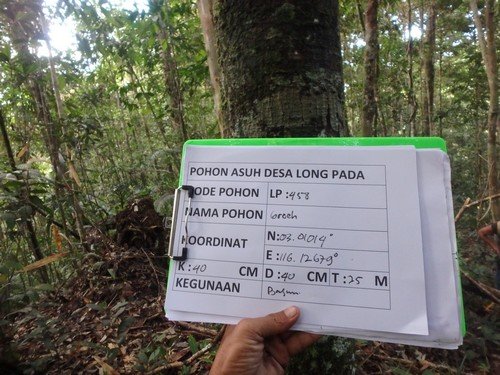 POHON ASUH DESA LONG PADA
KODE POHON LP :458
NAMA POHON
KOORDINAT N:03.01014°
E :116.12679°
K : 40 CM D : 40 CM T : 25 M
KEGUNAAN